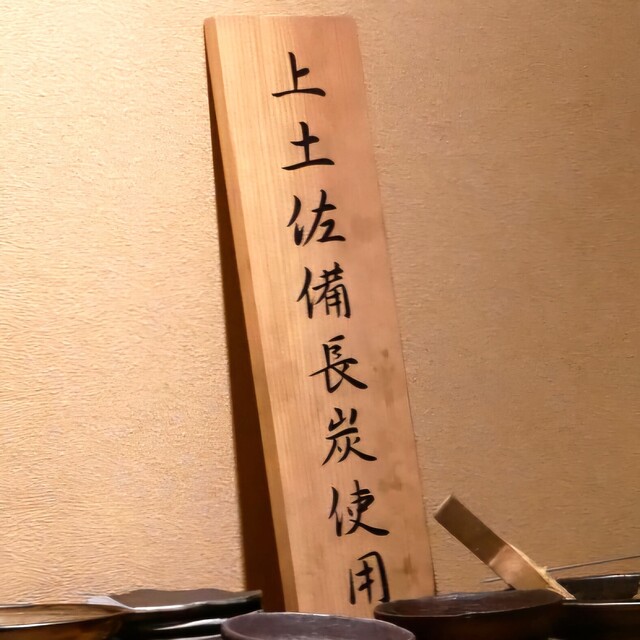 上土佐備長炭使用